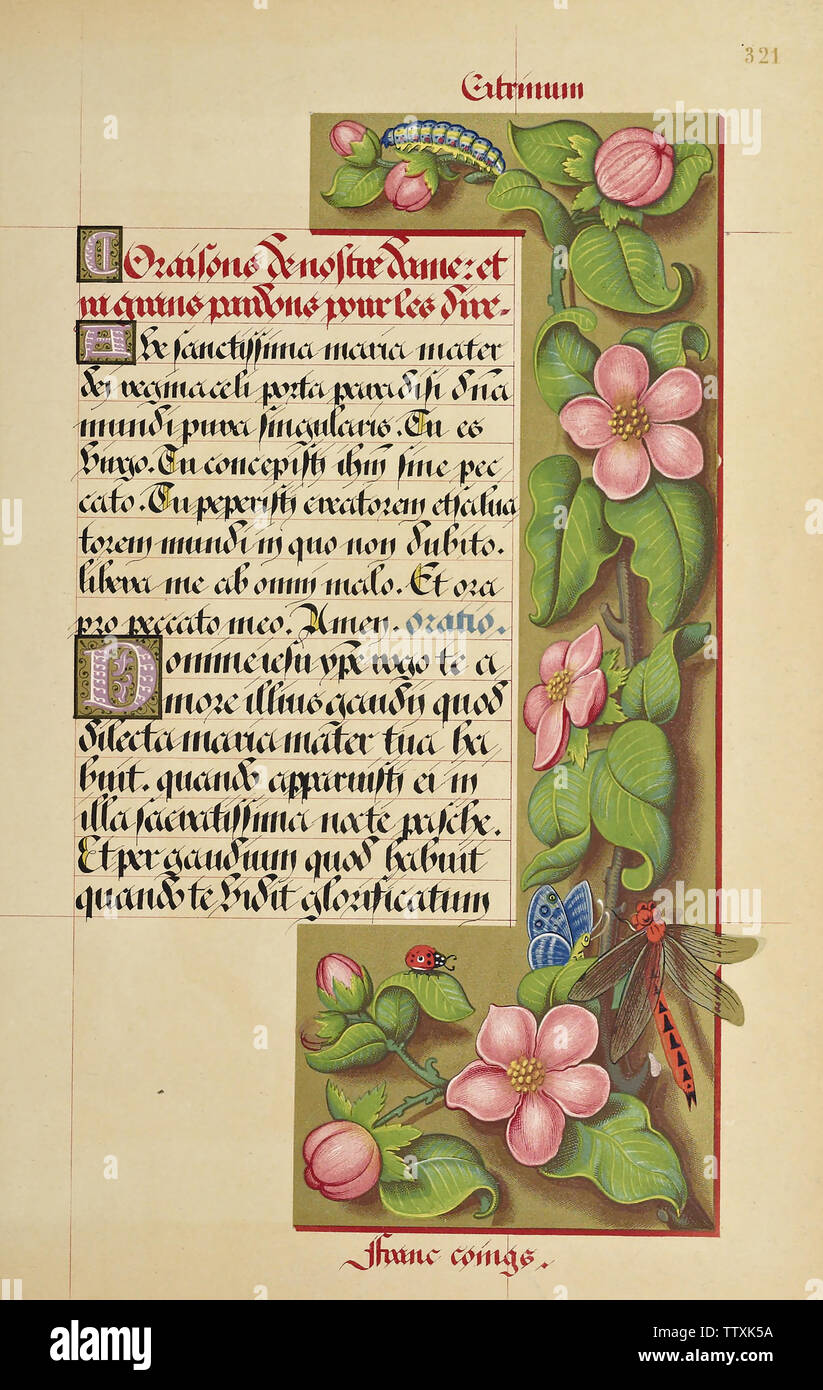 321
Citrinum
Oraisons de nostre dame: et
Ave sanctissima maria mater
dei regina celi porta paradisi dña
mundi pura singularis. Tu es
Virgo. Tu concepisti ihm sine pec
cato. Tu peperisti creatorem et salua
torem mundi in quo non dubito.
libera me ab omni malo. Et ora
pro peccato meo. Amen. oratio.
Domine iesu xpe rogo te a
more illius gaudij quod
dilecta maria mater tua ha
buit. quando apparuisti ei in
illa sacratissima nocte pasche.
Et per gaudium quod habuit
quando te vidit glorificatum
Franc coings.
alamy
alamy
Image ID: TTXK5A
www.alamy.com